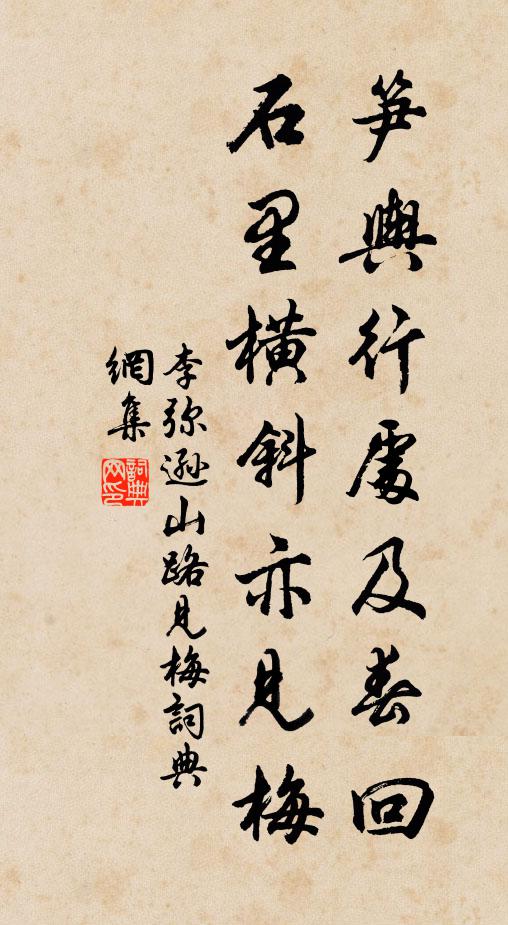 笋輿行處及春回
石里橫斜亦見梅
李弥遜山路見梅詞典
網集
詞典
网印